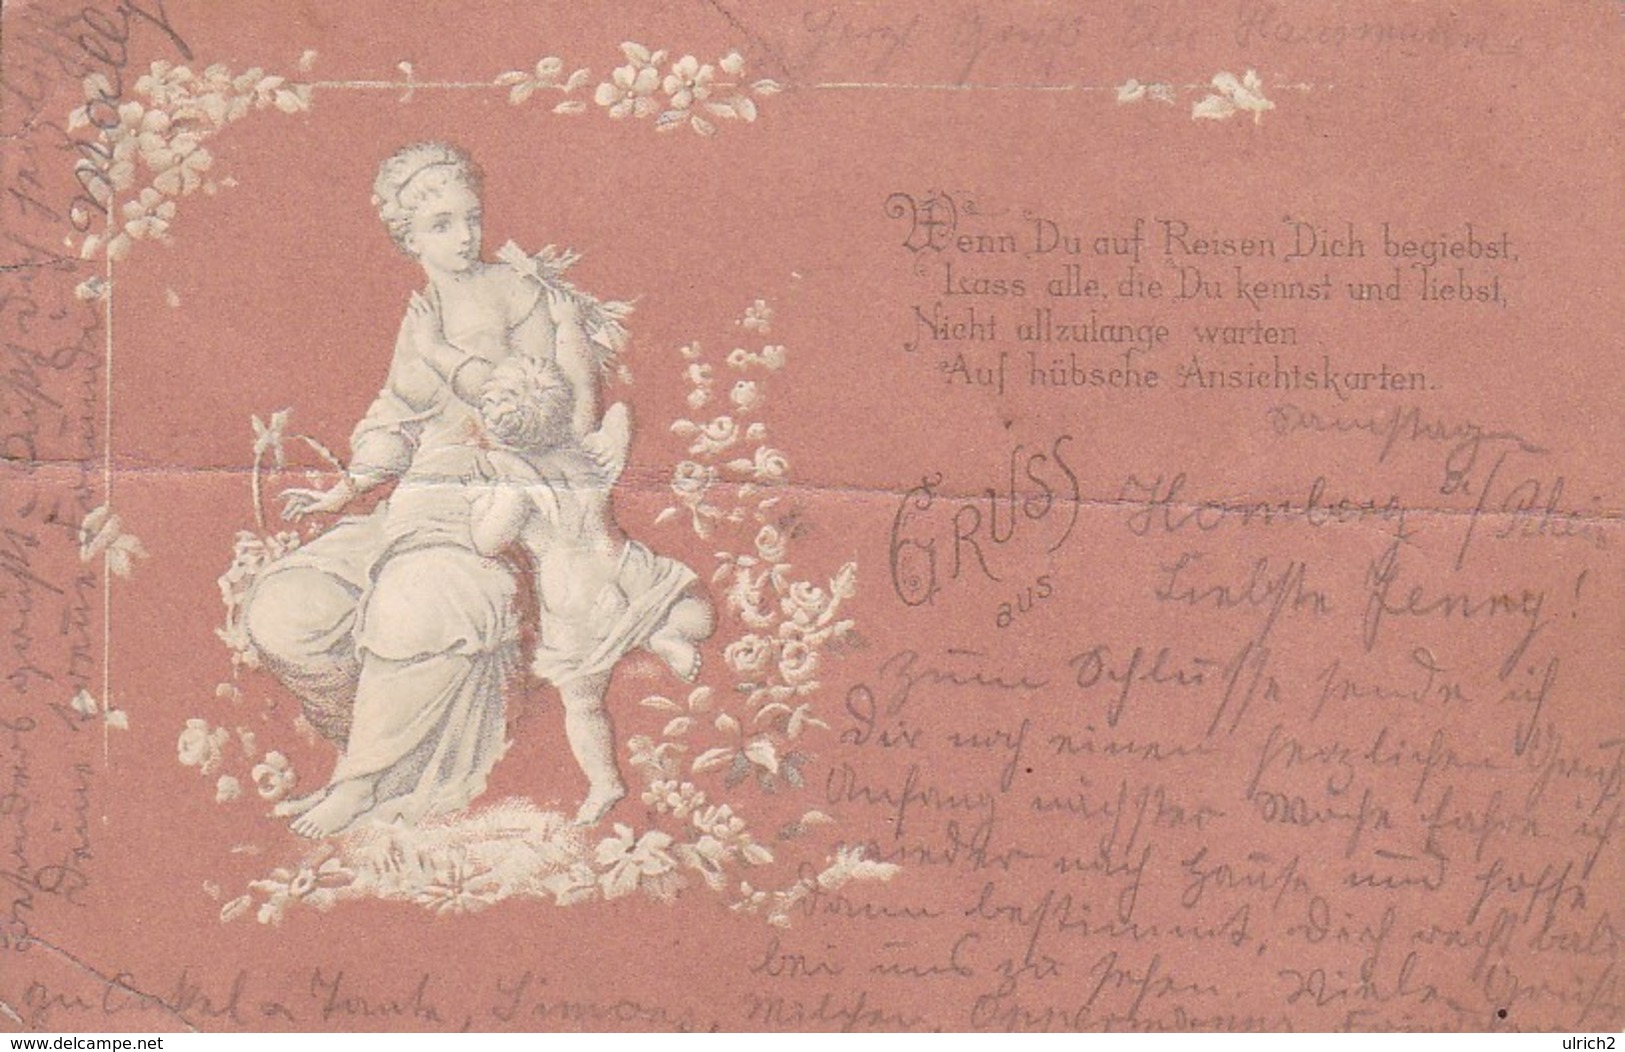 Herzl. Gruß Hausmann
Wenn Du auf Reisen Dich begiebst,
Lass alle, die Du kennst und liebst,
Nicht allzulange warten
Auf hübsche Ansichtskarten.
Samstag
GRUSS
aus
Homberg a/Rhein
Liebste Jenny!
Zum Schlusse sende ich
Dir noch einen herzlichen Gruß
Anfang nächster Woche fahre ich
wieder nach Hause und hoffe
dann bestimmt, Dich recht bald
bei uns zu sehen. Viele Grüße
zu Onkel u Tante, Simons, Oppermanns
Deine treue Freundin
Molly
delcampe.net
ulrich2